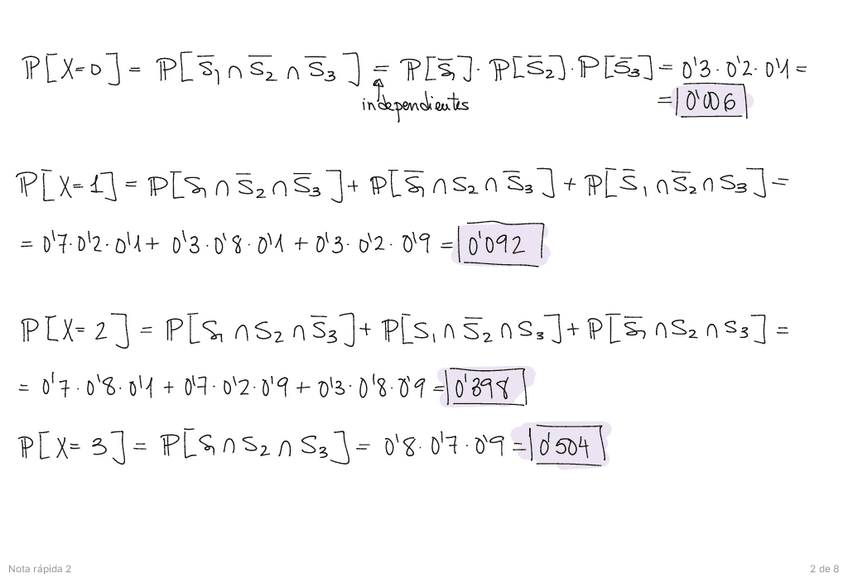 P[X=0] = P[S̄₁ ∩ S̄₂ ∩ S̄₃] = P[S̄₁]· P[S̄₂]· P[S̄₃] = 0'3 · 0'2 · 0'1 =
independientes
= 0'006
P[X=1] = P[S₁ ∩ S̄₂ ∩ S̄₃] + P[S̄₁ ∩ S₂ ∩ S̄₃] + P[S̄₁ ∩ S̄₂ ∩ S₃] =
= 0'7 · 0'2 · 0'1 + 0'3 · 0'8 · 0'1 + 0'3 · 0'2 · 0'9 = 0'092
P[X=2] = P[S₁ ∩ S₂ ∩ S̄₃] + P[S₁ ∩ S̄₂ ∩ S₃] + P[S̄₁ ∩ S₂ ∩ S₃] =
= 0'7 · 0'8 · 0'1 + 0'7 · 0'2 · 0'9 + 0'3 · 0'8 · 0'9 = 0'398
P[X=3] = P[S₁ ∩ S₂ ∩ S₃] = 0'8 · 0'7 · 0'9 = 0'504
Nota rápida 2
2 de 8